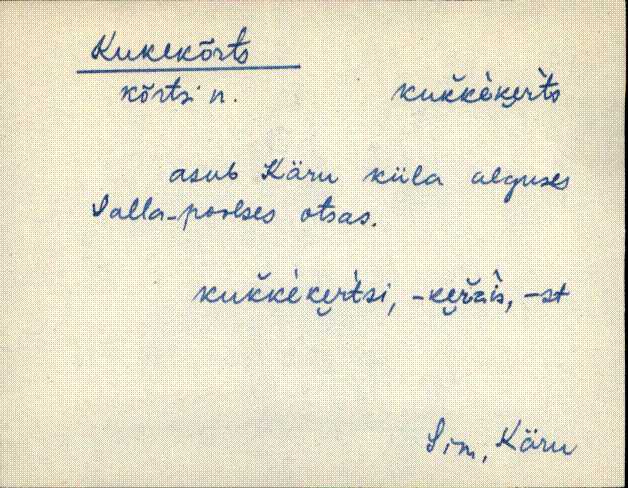 Kukekõrts
kõrtsi n. kuǩǩèke̮r̀ts
asub Käru küla alguses
Salla-poolses otsas.
kuǩǩèke̮r̀tsi, -ke̮řzìs, -st
Sim, Käru